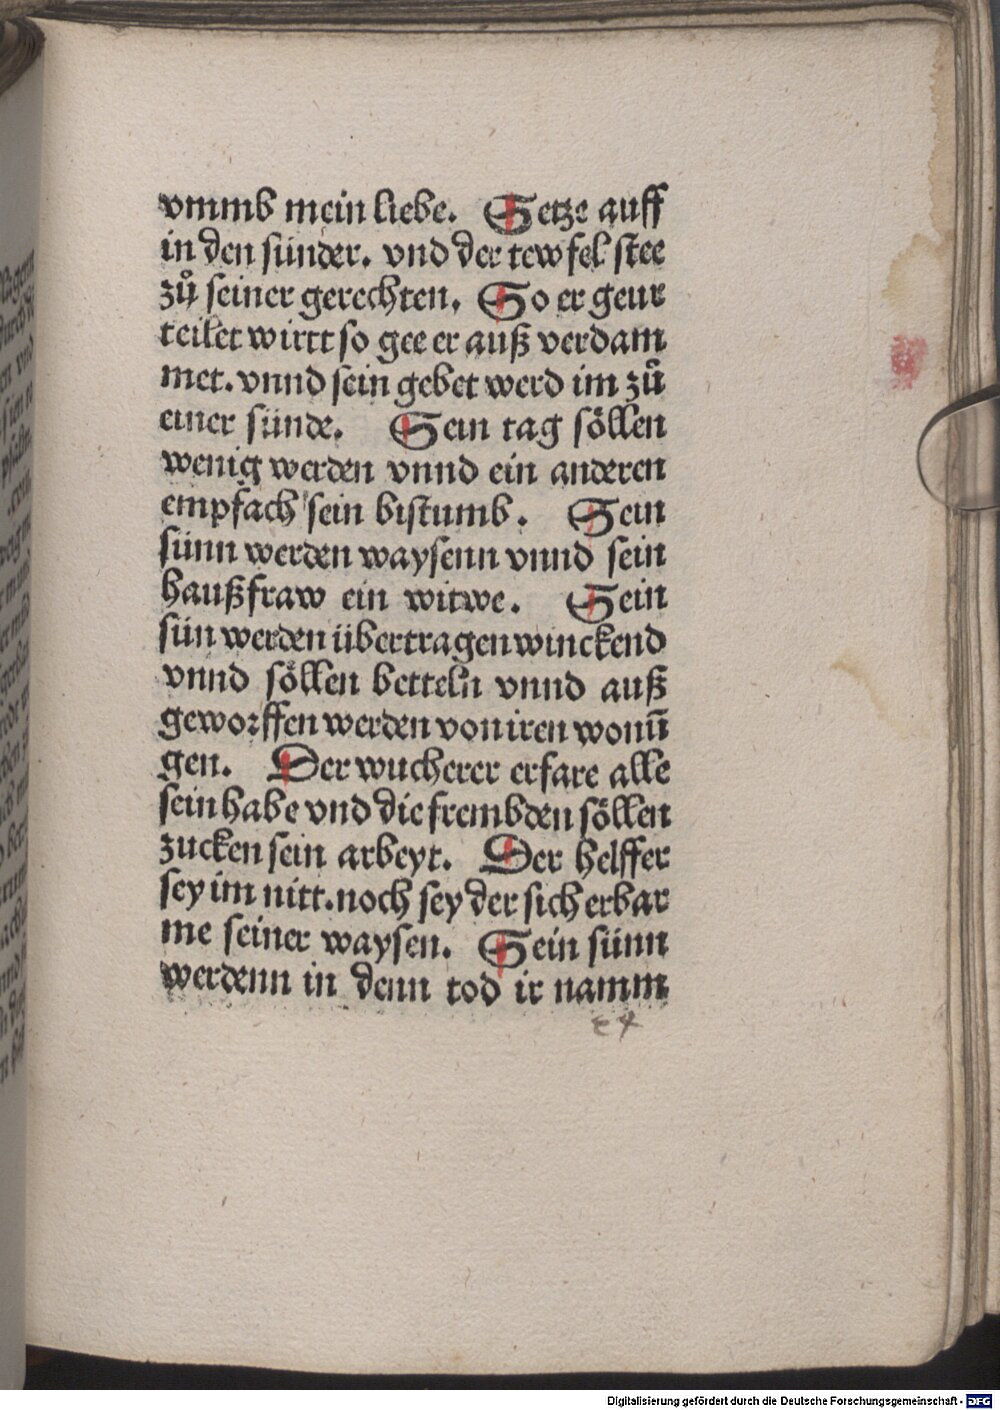 vmmb mein liebe. Setze auff
in den sünder. vnd der tewfel stee
zů seiner gerechten. So er geur
teilet wirtt so gee er auß verdam
met. vnnd sein gebet werd im zů
einer sünde. Sein tag söllen
wenig werden vnnd ein anderen
empfach sein bistumb. Sein
sünn werden waysenn vnnd sein
haußfraw ein witwe. Sein
sün werden übertragen winckend
vnnd söllen betteln vnnd auß
geworffen werden von iren wonū
gen. Der wucherer erfare alle
sein habe vnd die frembden söllen
zucken sein arbeyt. Der helffer
sey im nitt. noch sey der sich erbar
me seiner waysen. Sein sünn
werdenn in denn tod ir namm
Digitalisierung gefördert durch die Deutsche Forschungsgemeinschaft - DFG